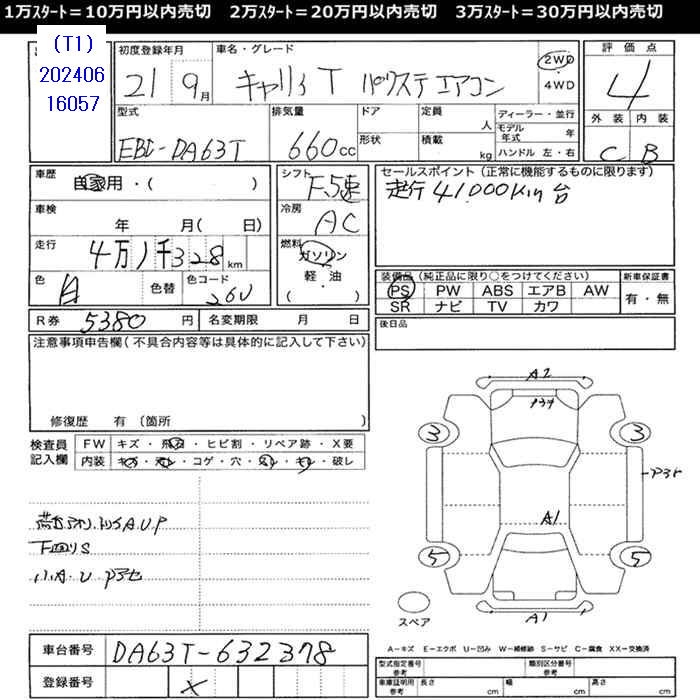 1万ｽﾀｰﾄ＝10万円以内売切　2万ｽﾀｰﾄ＝20万円以内売切　3万ｽﾀｰﾄ＝30万円以内売切
(T1)
202406
16057
初度登録年月　車名・グレード　評価点
21　9月　キャリィ T　パワステ エアコン　2WD・4WD　4
型式　排気量　ドア　定員　人　ディーラー・並行　外装　内装
EBD-DA63T　660cc　形状　積載　kg　モデル年式　年　ハンドル 左・右　C　B
車歴　自家用・(　)　シフト　F5速　セールスポイント (正常に機能するものに限ります)
走行 41,000km 台
車検　年　月(　日)　冷房　AC
走行　4万1千328km　燃料　ガソリン・軽油・(　)
色　白　色替　色コード　26U
装備品 (純正品に限り○をつけてください)　新車保証書
PS　PW　ABS　エアB　AW　有・無
SR　ナビ　TV　カワ
R券　5380円　名変期限　月　日　後日品
注意事項申告欄 (不具合内容等は具体的に記入して下さい)
修復歴　有 (箇所　)
検査員記入欄　FW　キズ・飛石・ヒビ割・リペア跡・X要
内装　キズ・汚レ・コゲ・穴・スレ・キレ・破レ
A2
3　3
A1
5　5
A1
スペア
下回りS
小A・U
A−キズ　E−エクボ　U−凹み　W−補修跡　S−サビ　C−腐食　XX−交換済
車台番号　DA63T-632378
登録番号　×
型式指定番号 参考　類別区分番号 参考
車庫証明用 参考　長さ　cm　幅　cm　高さ　cm